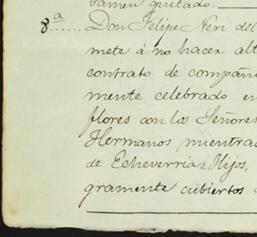 bamen quitado.
8ª Don Felipe Neri del
mete á no hacer alt
contrato de compañi
mente celebrado en
flores con los Señores
Hermanos mientras
de Echeverria é Hijos,
gramente cubiertos